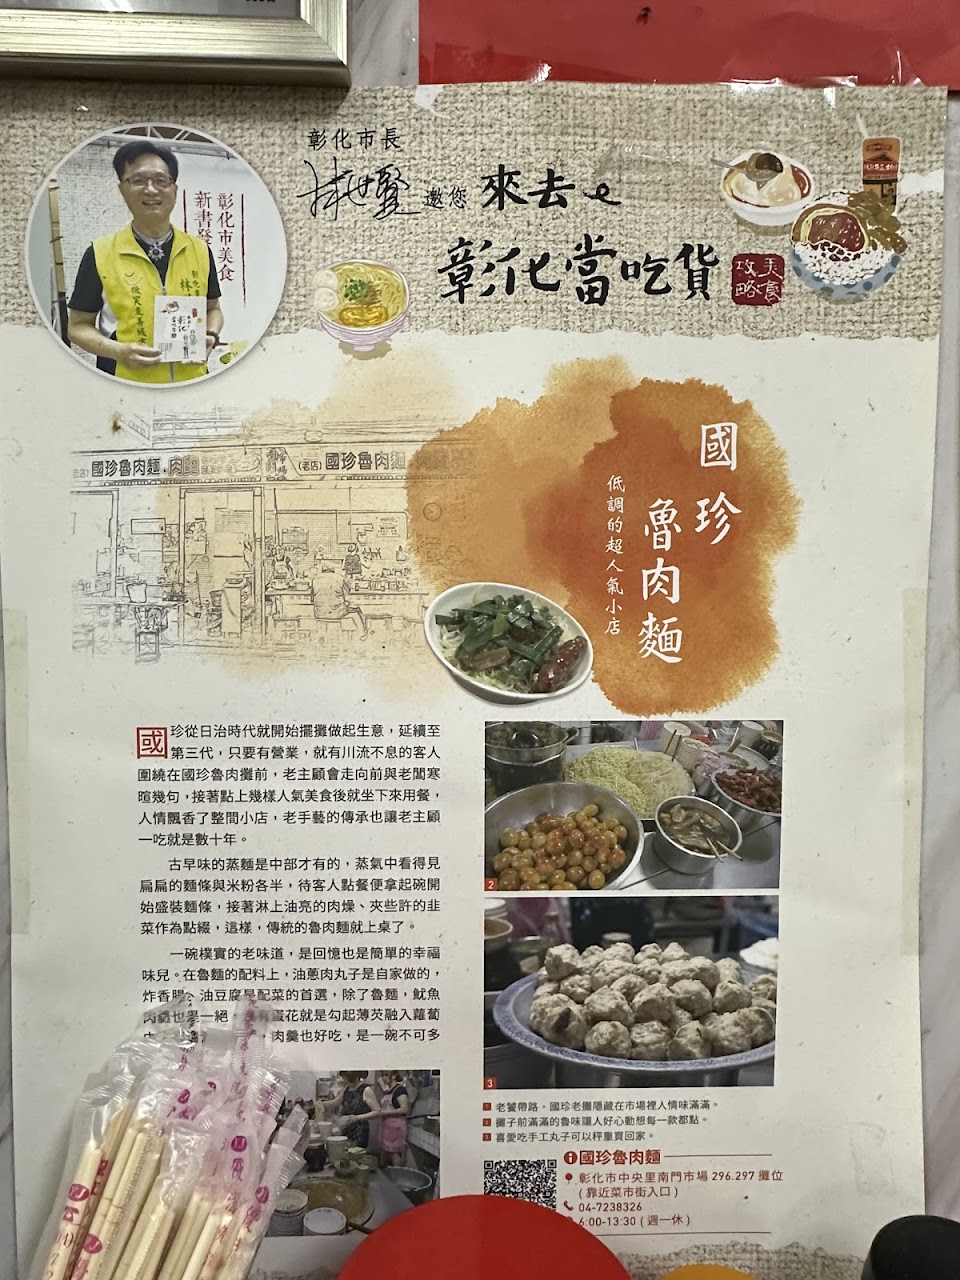 彰化市長
林世賢 邀您 來去
彰化當吃貨
美食
攻略
彰化市美食
新書發
國珍魯肉麵.肉
(老店)國珍魯肉麵
國珍
魯肉麵
低調的超人氣小店
國珍從日治時代就開始擺攤做起生意，延續至
第三代，只要有營業，就有川流不息的客人
圍繞在國珍魯肉攤前，老主顧會走向前與老闆寒
暄幾句，接著點上幾樣人氣美食後就坐下來用餐，
人情飄香了整間小店，老手藝的傳承也讓老主顧
一吃就是數十年。
古早味的蒸麵是中部才有的，蒸氣中看得見
扁扁的麵條與米粉各半，待客人點餐便拿起碗開
始盛裝麵條，接著淋上油亮的肉燥、夾些許的韭
菜作為點綴，這樣，傳統的魯肉麵就上桌了。
一碗樸實的老味道，是回憶也是簡單的幸福
味兒。在魯麵的配料上，油蔥肉丸子是自家做的，
炸香腸、油豆腐是配菜的首選，除了魯麵，魷魚
肉羹也是一絕，有蛋花就是勾起薄芡融入蘿蔔
，肉羹也好吃，是一碗不可多
2
3
1 老饕帶路，國珍老攤隱藏在市場裡人情味滿滿。
2 攤子前滿滿的魯味讓人好心動想每一款都點。
3 喜愛吃手工丸子可以秤重買回家。
國珍魯肉麵
彰化市中央里南門市場 296.297 攤位
(靠近菜市街入口)
04-7238326
6:00-13:30 (週一休)